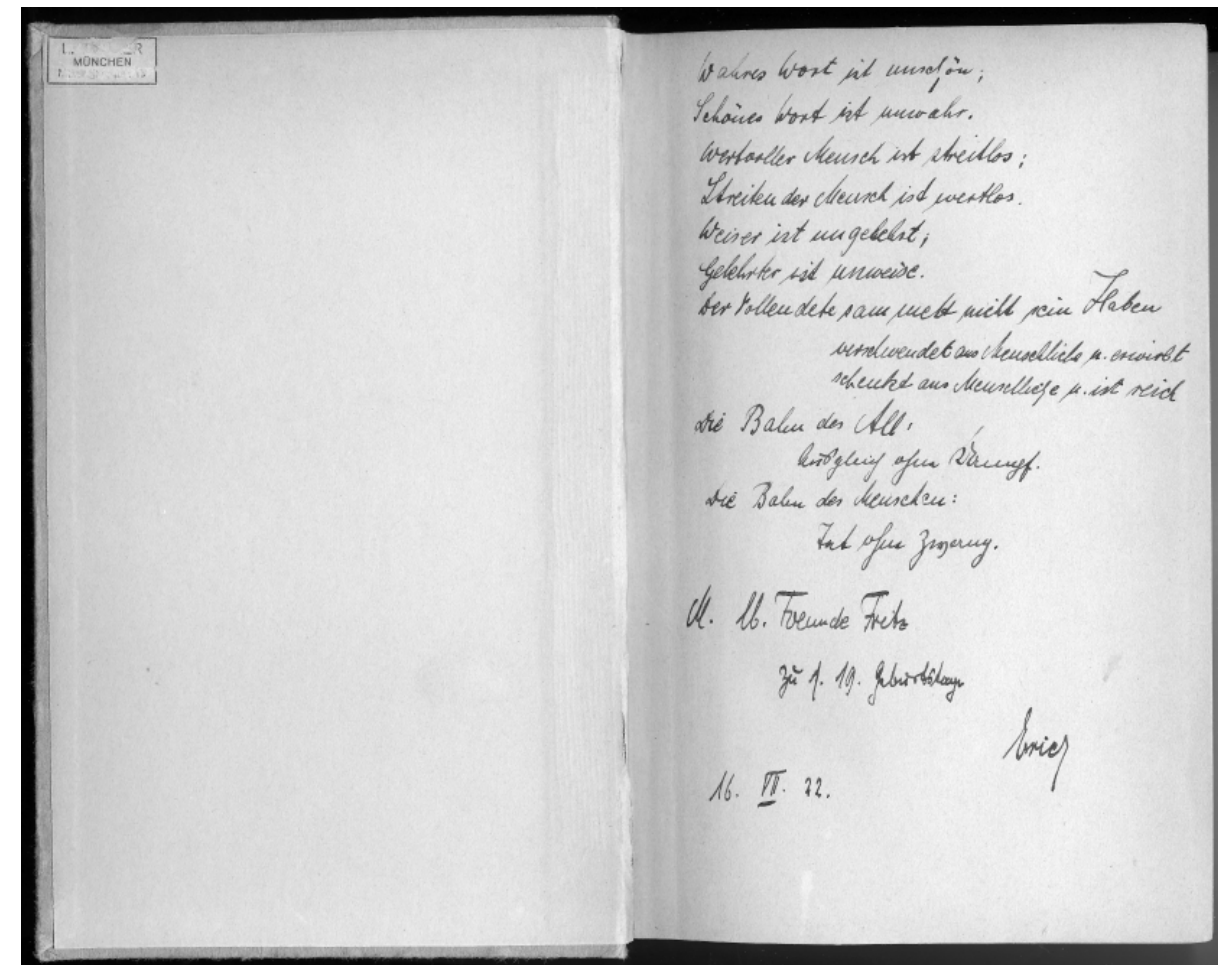 MÜNCHEN
Wahres Wort ist unschön;
Schönes Wort ist unwahr.
Wertvoller Mensch ist streitlos;
Streitender Mensch ist wertlos.
Weiser ist ungelehrt;
Gelehrter ist unweise.
Der Vollendete sammelt nicht sein Haben
verschwendet aus Menschlichk u. erwirbt
schenkt aus Menschliche u. ist reich
Die Bahn des All:
Ausgleich ohne Kampf.
Die Bahn des Menschen:
Tat ohne Zwang.
M. lb. Freunde Fritz
zu s. 19. Geburtstage
Erich
16. VII. 22.